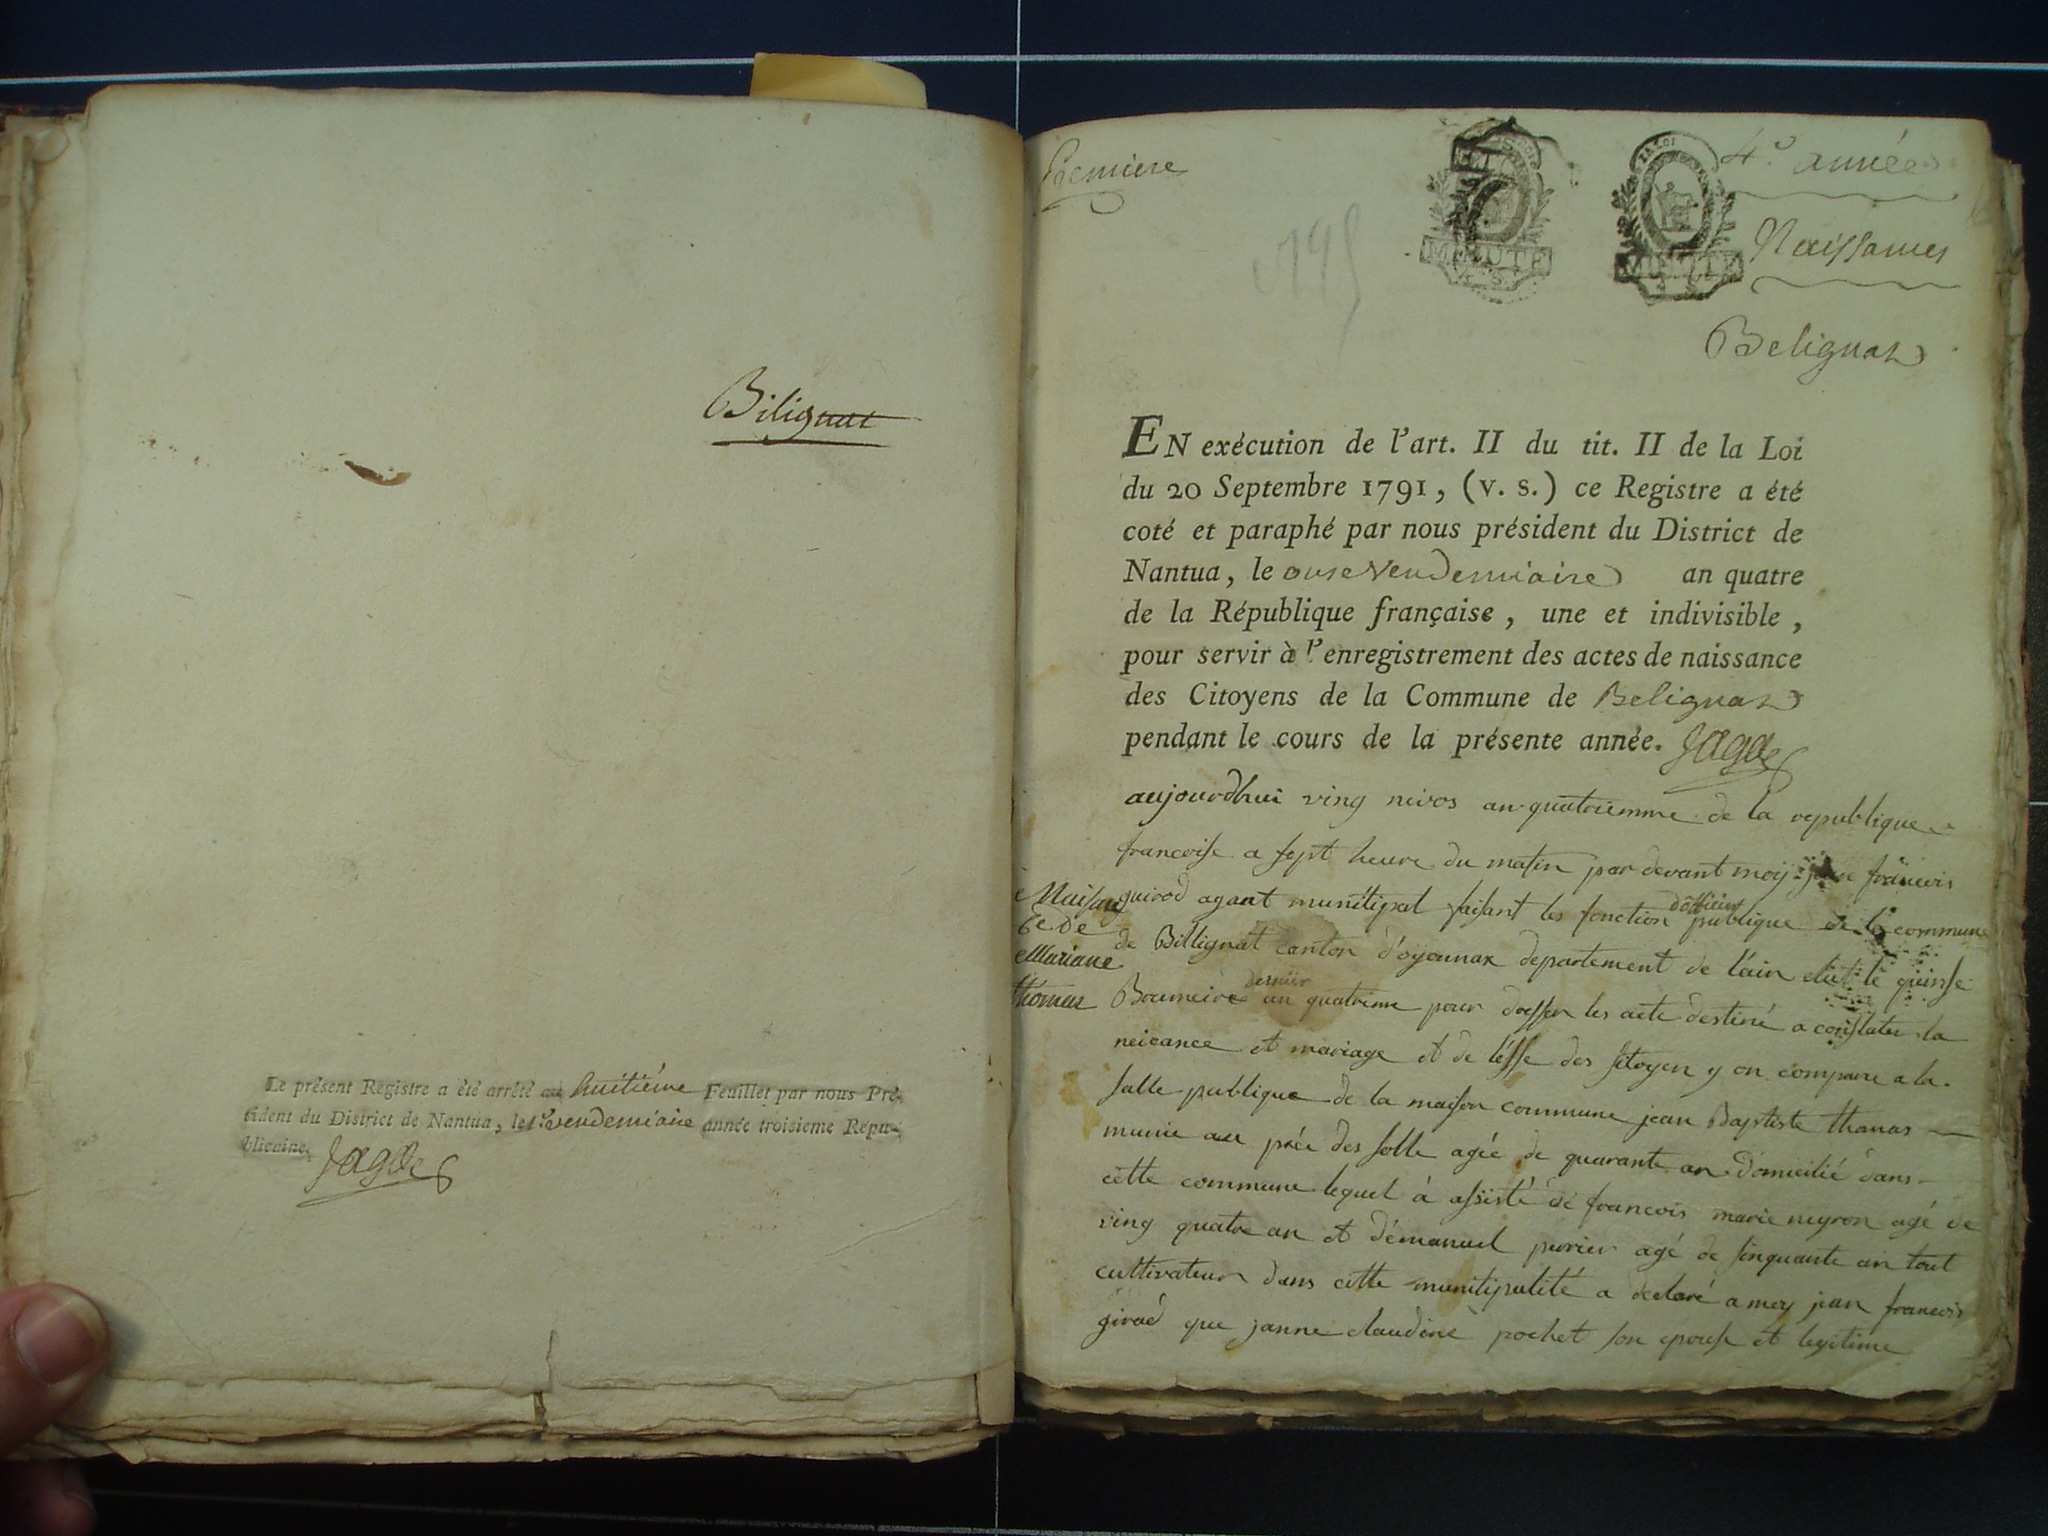 Bilignat
Le présent Registre a été arrêté au huitiéme Feuillet par nous Pré-
sident du District de Nantua, le 1er vendemiaire année troisieme Répu-
blicaine.
Jagde
Premiere
4e année
Naissances
Belignaz
LA LOI
MINUTE
MINUTE
EN exécution de l'art. II du tit. II de la Loi
du 20 Septembre 1791, (v. s.) ce Registre a été
coté et paraphé par nous président du District de
Nantua, le onse vendemiaire an quatre
de la République française, une et indivisible,
pour servir à l'enregistrement des actes de naissance
des Citoyens de la Commune de Belignaz
pendant le cours de la présente année. Jagde
aujourdhui ving nivos an quatriemme de la republique
francoise a sept heure du matin par devant moy jean francois
guirod agant munitipal faisant les fonction dofficier publique de la commune
de Billignat canton d'oyonnax departement de l'ain elut le quinse
Brumeire dernier an quatrieme pour dresser les acte destiné a constater la
neicance et mariage et de lesse des sitoyen y on compare a la
salle publique de la maison commune jean Baptiste thomas
munie au prée des solle agée de quarante an domicilié dans
cette commune lequel à assisté de francois marie neyron agé de
ving quatre an et démanuel perrier agé de sinquante an tout
cultivateur dans cette munitipalité a declaré a moy jean francois
girod que janne claudine pochet son epouse et legitime
Naisance
de
Mariane
thomas